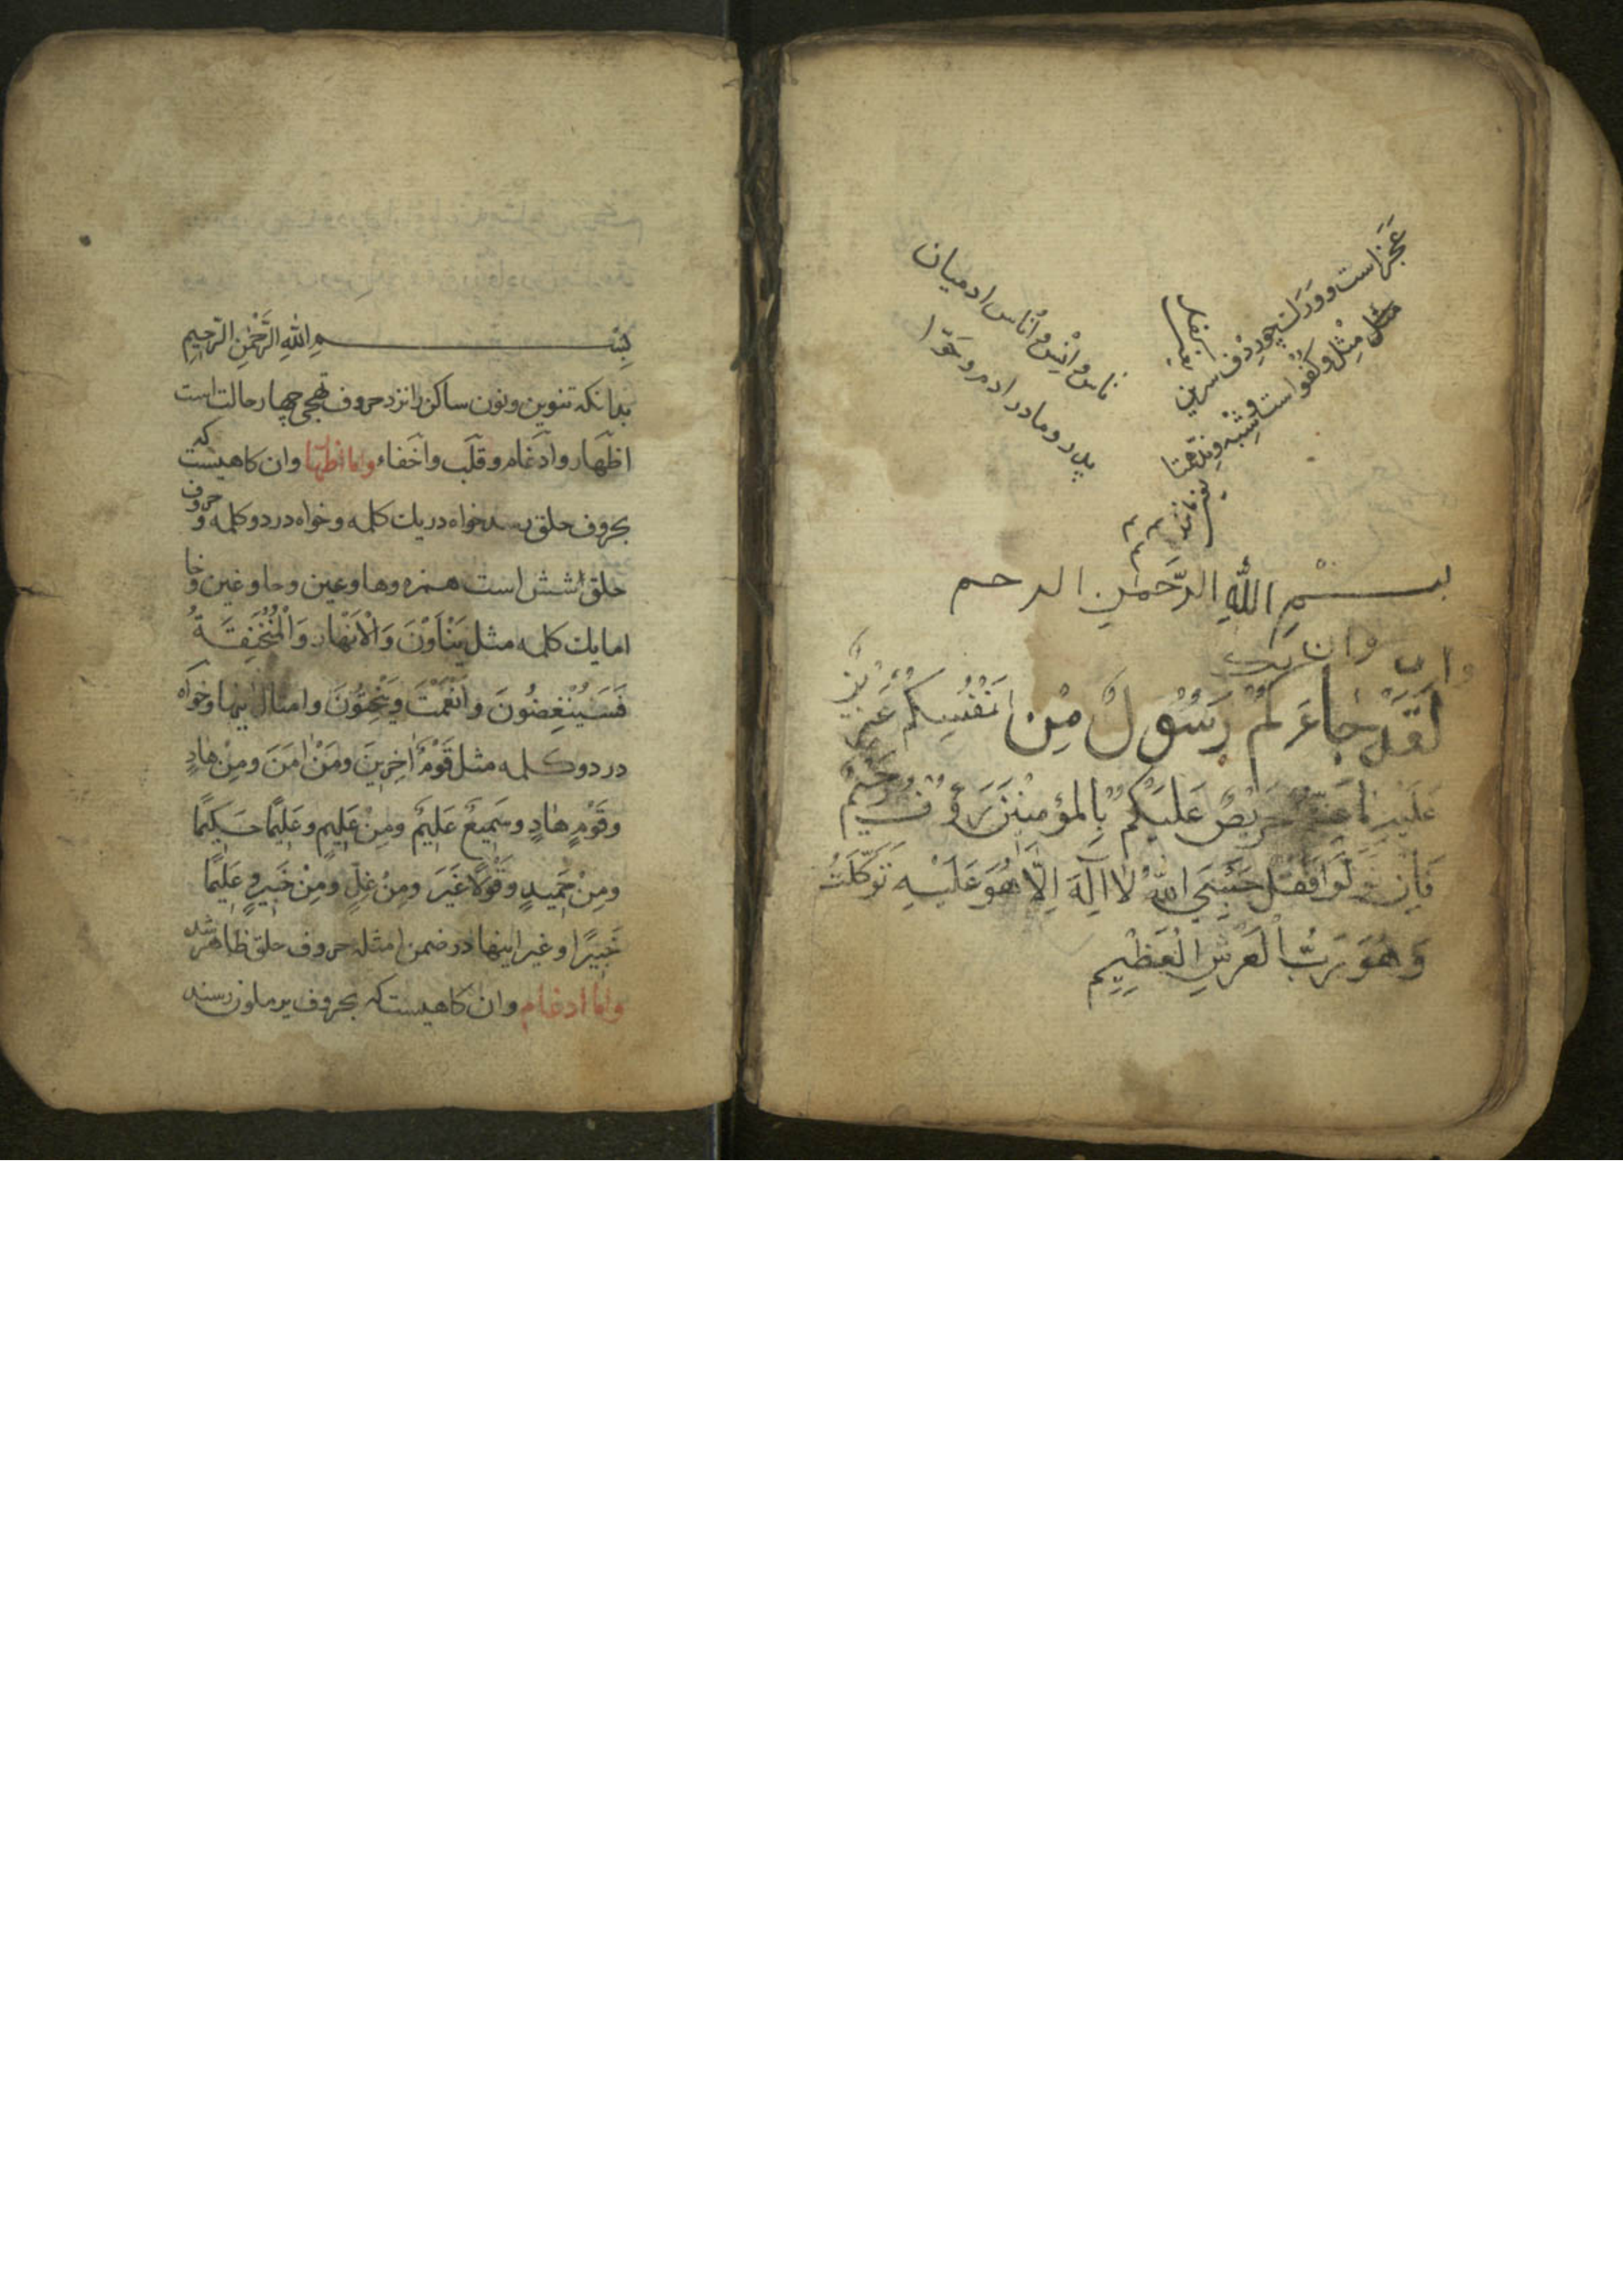 عَجُز است و وَرَك چو رِدْف سرین
مثل مِثْل و كُفُو است و شِبْه و نِدّ همتا
ناس و اِنْس و اُناس ادمیان
پدر و مادر ادم و حَوّا
بِسْمِ اللَّهِ الرَّحْمٰنِ الرحم
وان وان یک
لَقَدْ جَاءَكُمْ رَسُوْلٌ مِنْ اَنْفُسِكُمْ عَزِيْزٌ
عَلَيْهِ مَاعَنِتُّمْ حَرِيْصٌ عَلَيْكُمْ بِالْمُؤْمِنِيْنَ رَؤُفٌ رَحِيْمٌ
فَاِنْ تَوَلَّوْا فَقُلْ حَسْبِيَ اللهُ لَا اِلٰهَ اِلَّا هُوَ عَلَيْهِ تَوَكَّلْتُ
وَهُوَ رَبُّ الْعَرْشِ الْعَظِيْمِ
بِسْمِ اللهِ الرَّحْمٰنِ الرَّحِيمِ
بدانکه تنوین و نون ساکن را نزد حروف تهجی چهار حالت است
اظهار و ادغام و قلب و اخفاء واما اظهار وان کاهیست که
بحروف حلق رسد خواه در یك کلمه و خواه در دو کلمه و حروف
حلق شش است همزه وها وعین وحا وغین وخا
اما یك کلمه مثل يَنْأَوْنَ وَالْاَنْهَارِ وَالْمُنْخَنِقَةُ
فَسَيُنْغِضُونَ وَاَنْعَمْتَ وَيَنْحِتُونَ وامثال اینها وخواه
در دو کلمه مثل قَوْمٌ اٰخِرِينَ ومَنْ اٰمَنَ ومِنْ هَادٍ
وقَوْمٍ هَادٍ وسَمِيعٌ عَلِيمٌ ومِنْ عَلِيمٍ وعَلِيمًا حَكِيمًا
ومِنْ حَمِيدٍ وقَوْلًا غَيْرَ ومِنْ غِلٍّ ومِنْ خَبِيرٍ وعَلِيمًا
خَبِيرًا وغیر اینها در ضمن امثلهٔ حروف حلق ظاهر شد
واما ادغام وان کاهیست که بحروف یرملون رسند